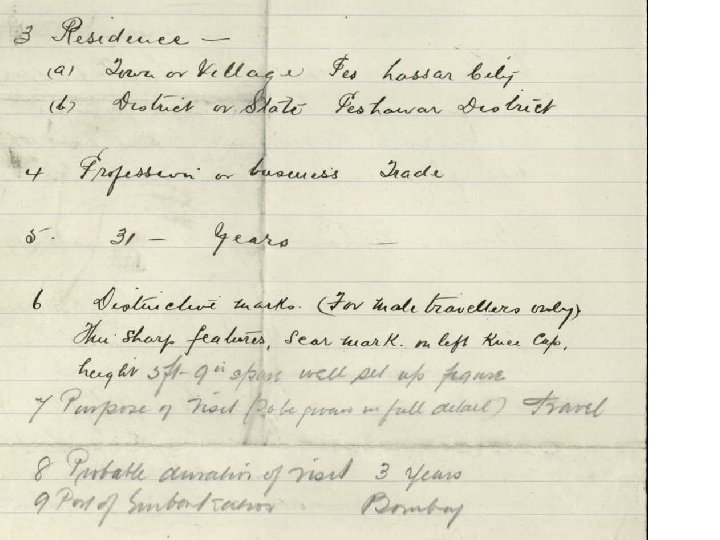 3 Residence —
(a) Town or Village Pes hassar City
(b) District or State Peshawar District
4 Profession or business Trade
5. 31 — Years —
6 Distinctive marks. (For male travellers only)
Thin sharp features, Scar mark. on left Knee Cap,
height 5ft-9in spare well set up figure
7 Purpose of visit (to be given in full detail) Travel
8 Probable duration of visit 3 years
9 Port of Embarkation Bombay